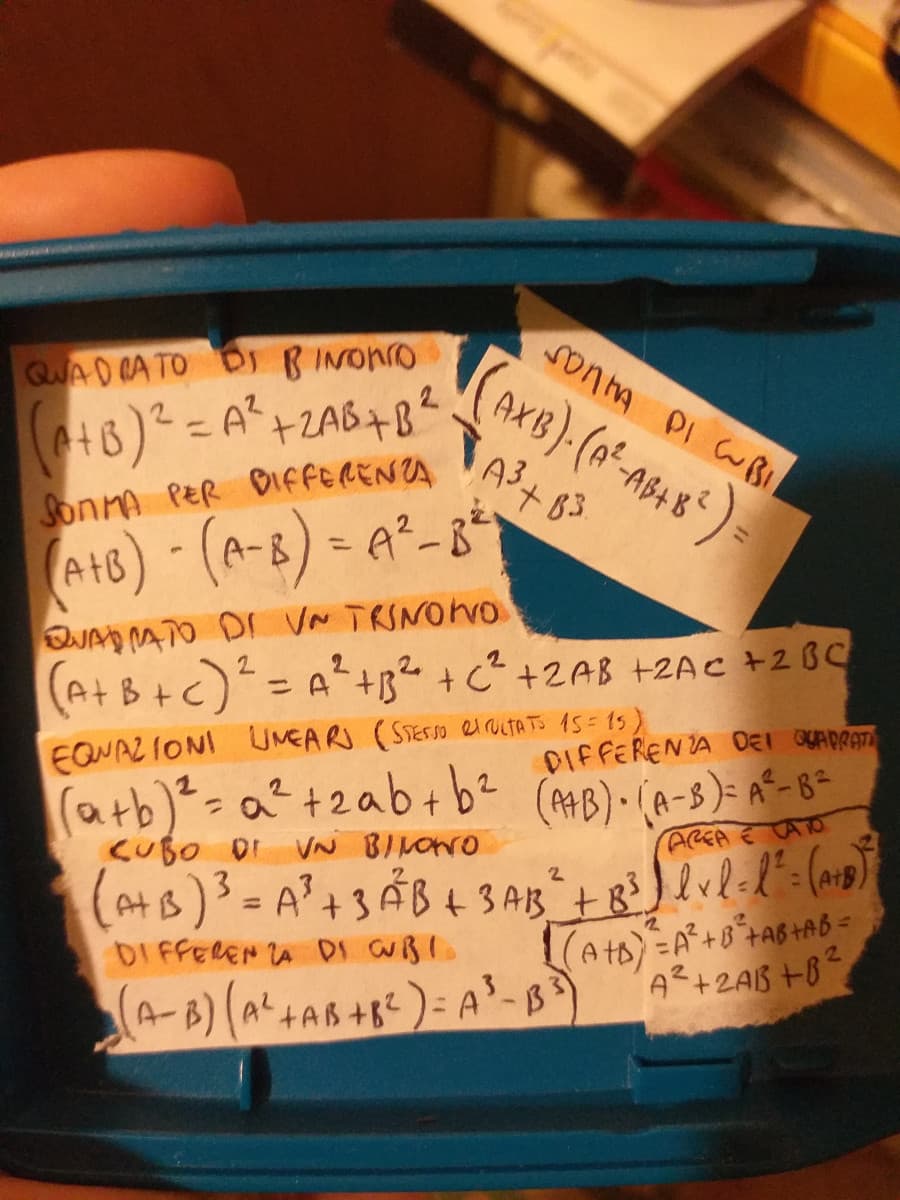 QUADRATO DI BINOMIO
(A+B)² = A² + 2AB + B²
SOMMA PER DIFFERENZA
(A+B) · (A-B) = A² - B²
SOMMA DI CUBI
(A+B)·(A²-AB+B²)=
A3 + B3
QUADRATO DI UN TRINOMIO
(A+B+C)² = A² + B² + C² + 2AB + 2AC + 2BC
EQUAZIONI LINEARI (STESSO RISULTATO 15=15)
(a+b)² = a² + 2ab + b²
DIFFERENZA DEI QUADRATI
(A+B)·(A-B) = A² - B²
CUBO DI UN BINOMIO
(A+B)³ = A³ + 3A²B + 3AB² + B³
AREA E LATO
lxl=l²=(A+B)²
(A+B)²=A²+B²+AB+AB=
A²+2AB+B²
DIFFERENZA DI CUBI
(A-B)(A²+AB+B²)=A³-B³